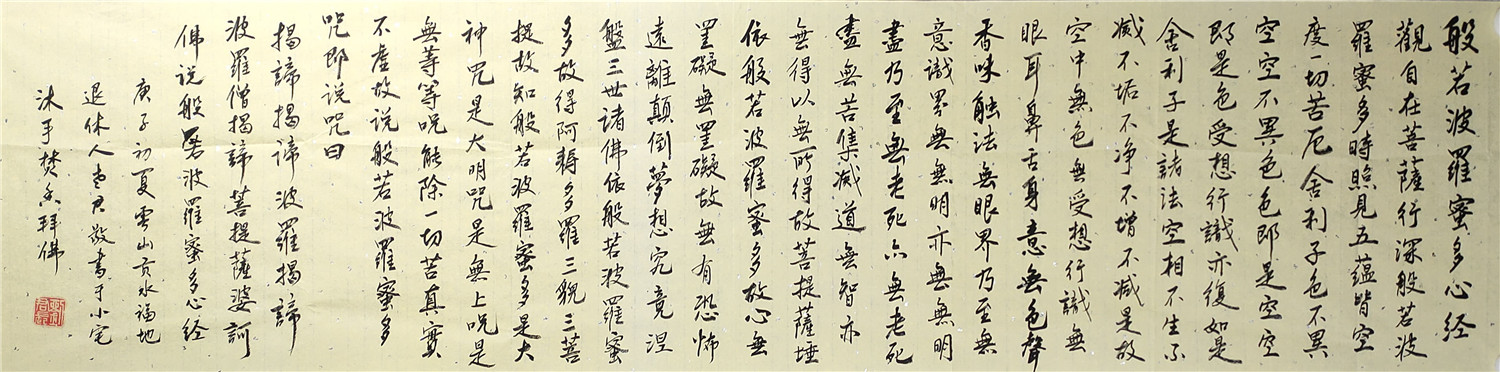 般若波羅蜜多心经
觀自在菩薩行深般若波
羅蜜多時照見五蕴皆空
度一切苦厄舍利子色不異
空空不異色色即是空空
即是色受想行識亦復如是
舍利子是諸法空相不生不
滅不垢不净不增不减是故
空中無色無受想行識無
眼耳鼻舌身意無色聲
香味触法無眼界乃至無
意識界無無明亦無無明
盡乃至無老死亦無老死
盡無苦集滅道無智亦
無得以無所得故菩提薩埵
依般若波羅蜜多故心無
罣礙無罣礙故無有恐怖
遠離顛倒夢想究竟涅
盤三世諸佛依般若波羅蜜
多故得阿耨多羅三貌三菩
提故知般若波羅蜜多是大
神咒是大明咒是無上咒是
無等等呪能除一切苦真實
不虚故说般若波羅蜜多
咒即说咒曰
揭諦揭谛波羅揭諦
波羅僧揭諦菩提薩婆訶
佛说般若波羅蜜多心经
庚子初夏雲山貢水福地
退休人老君敬書于小宅
沐手焚香拜佛